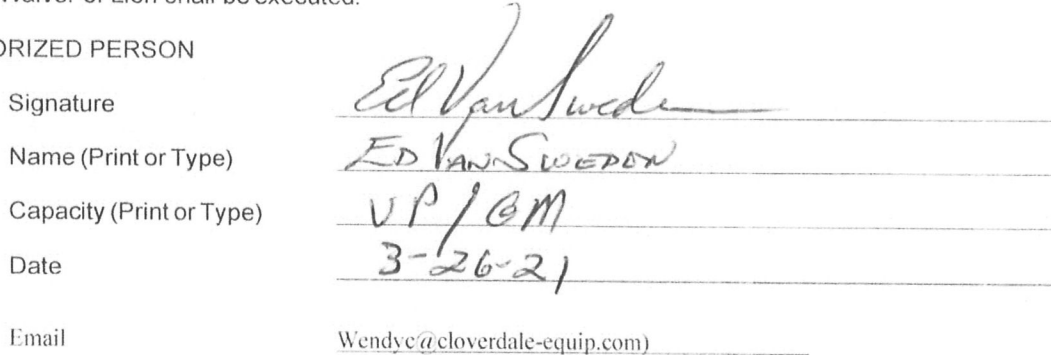 Waiver of Lien shall be executed.
ORIZED PERSON
Signature Ed Van Sweden
Name (Print or Type) ED VAN SWEDEN
Capacity (Print or Type) VP/GM
Date 3-26-21
Email Wendyc@cloverdale-equip.com)